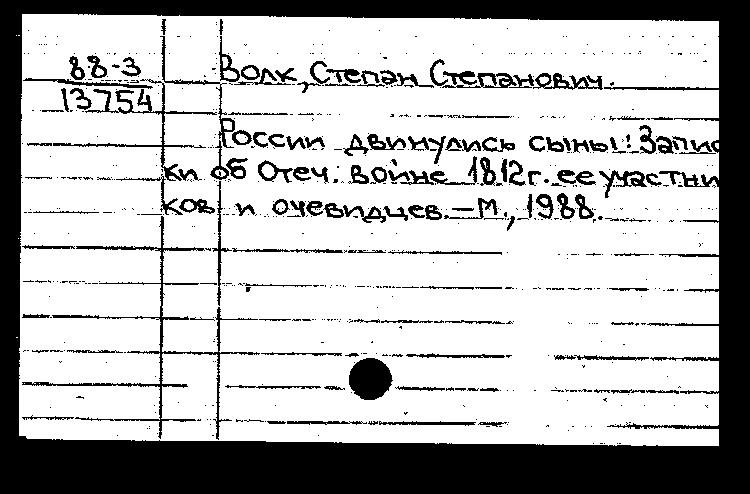 88-3
13754
Волк, Степан Степанович.
России двинулись сыны: Запис
ки об Отеч. войне 1812г. ее участни
ков и очевидцев.—М., 1988.